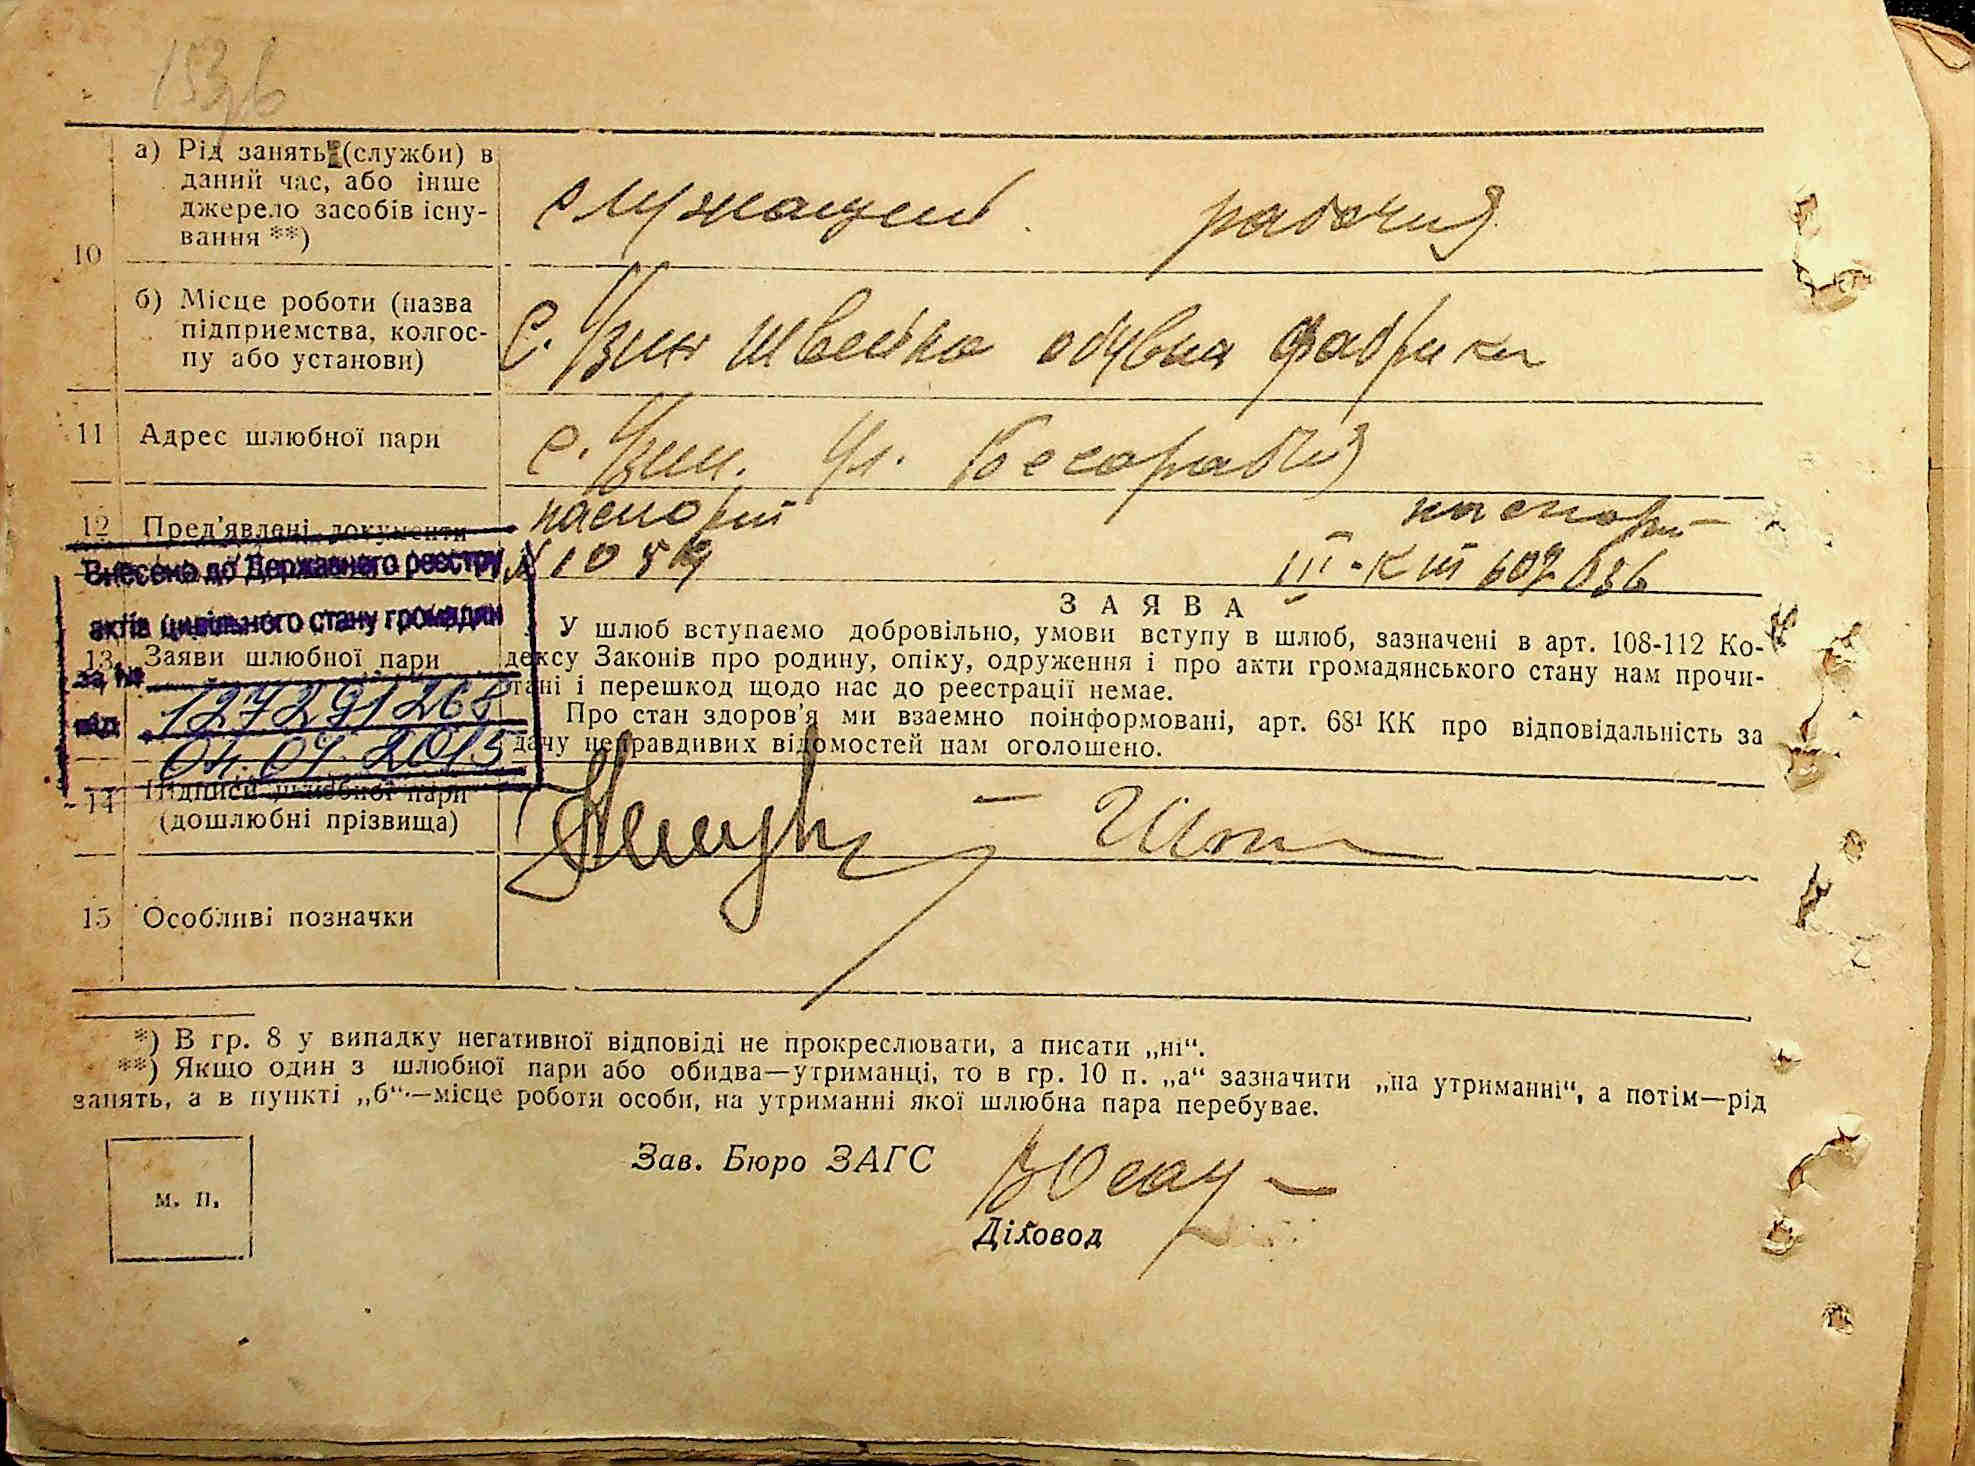 а) Рід занять (служби) в
даний час, або інше
джерело засобів існу-
вання **)
10
служащей рабочий
б) Місце роботи (назва
підприємства, колгос-
пу або установи)
с. Узин швейна обувна фабрика
11 Адрес шлюбної пари
с. Узин. Ул.
12 Пред'явлені документи
паспорт паспорт
III-КШ 607036
Внесено до Державного реєстру
актів цивільного стану громадян
за №
127291268
від
04.07.2015
13 Заяви шлюбної пари
ЗАЯВА
У шлюб вступаємо добровільно, умови вступу в шлюб, зазначені в арт. 108-112 Ко-
дексу Законів про родину, опіку, одруження і про акти громадянського стану нам прочи-
тані і перешкод щодо нас до реєстрації немає.
Про стан здоров'я ми взаємно поінформовані, арт. 68¹ КК про відповідальність за
дачу неправдивих відомостей нам оголошено.
14 Підписи шлюбної пари
(дошлюбні прізвища)
15 Особливі позначки
*) В гр. 8 у випадку негативної відповіді не прокреслювати, а писати „ні“.
**) Якщо один з шлюбної пари або обидва—утриманці, то в гр. 10 п. „а“ зазначити „на утриманні“, а потім—рід
занять, а в пункті „б“—місце роботи особи, на утриманні якої шлюбна пара перебуває.
Зав. Бюро ЗАГС
м. п.
Діловод